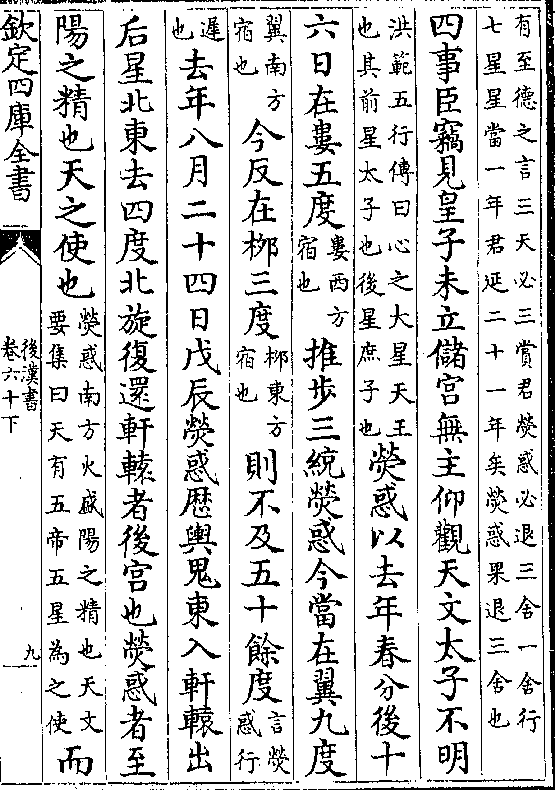 有至德之言三天必三賞君熒惑必退三舍一舍行
七星星當一年君延二十一年矣熒惑果退三舍也
四事臣竊見皇子未立儲宮無主仰觀天文太子不明
洪範五行傳曰心之大星天王
也其前星太子也後星庶子也
熒惑以去年春分後十
六日在婁五度
婁西方
宿也
推步三統熒惑今當在翼九度
翼南方
宿也
今反在柳三度
柳東方
宿也
則不及五十餘度
言熒
惑行
遲
也
去年八月二十四日戊辰熒惑歷輿鬼東入軒轅出
后星北東去四度北旋復還軒轅者後宮也熒惑者至
陽之精也天之使也
熒惑南方火盛陽之精也天文
要集曰天有五帝五星為之使
而
欽定四庫全書
後漢書
卷六十下
九